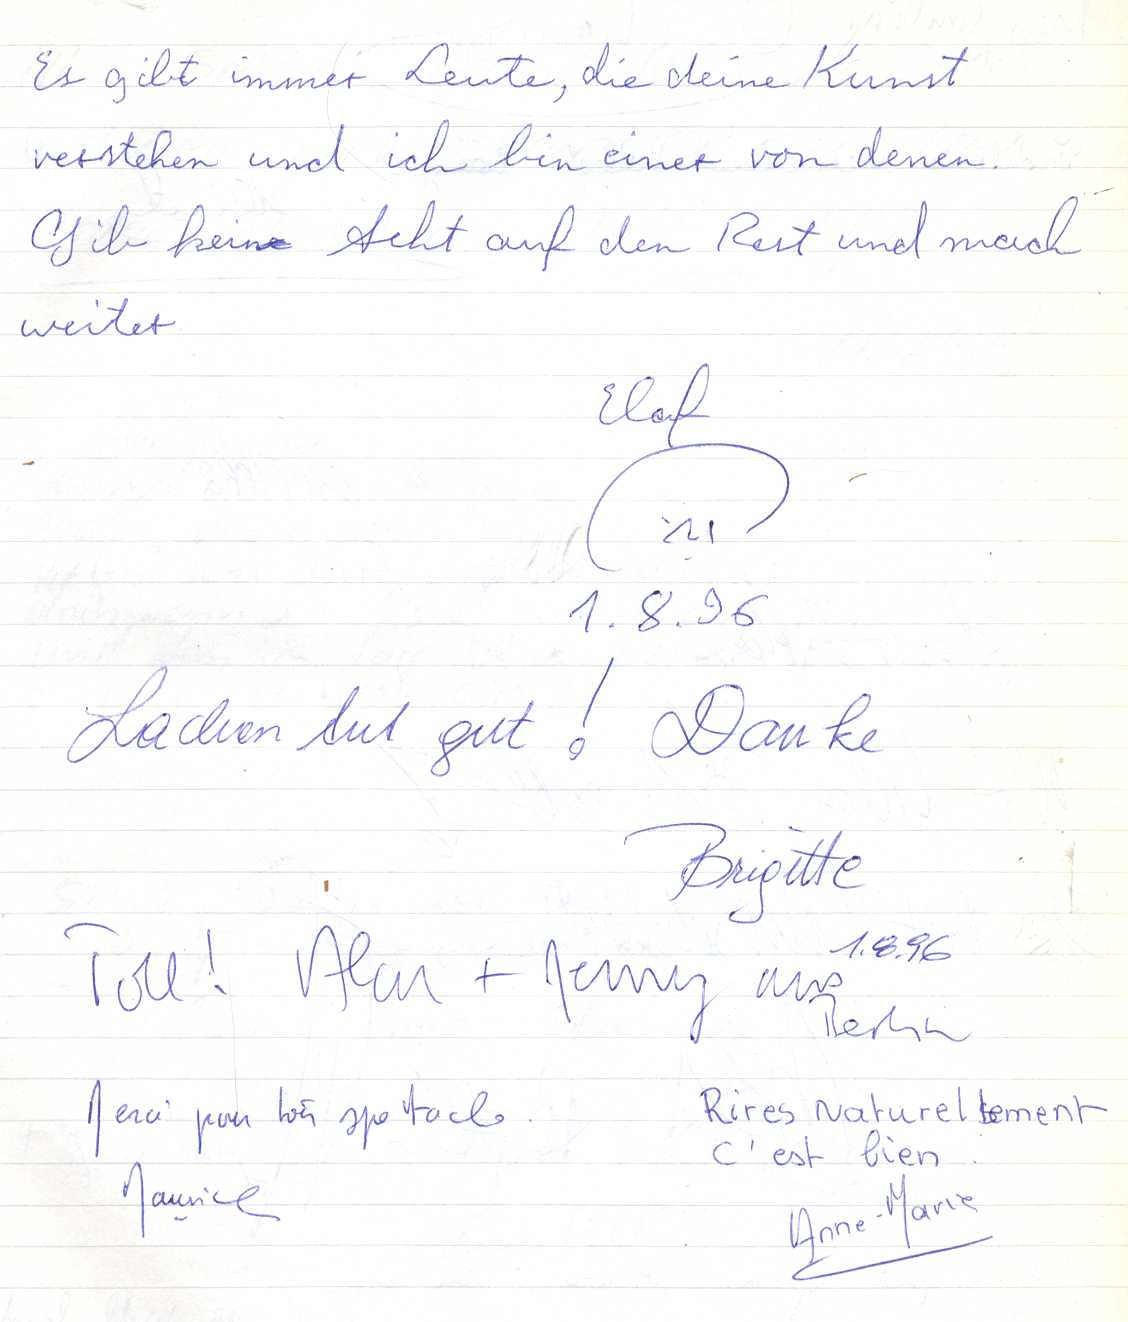 Es gibt immer Leute, die deine Kunst
verstehen und ich bin einer von denen.
Gib keine Acht auf den Rest und mach
weiter
Elaf
1.8.96
Lachen tut gut! Danke
Brigitte
Toll! Alan + Jenny aus
1.8.96
Berlin
Merci pour ton spectacle.
Maurice
Rires Naturellement
c'est bien.
Anne-Marie